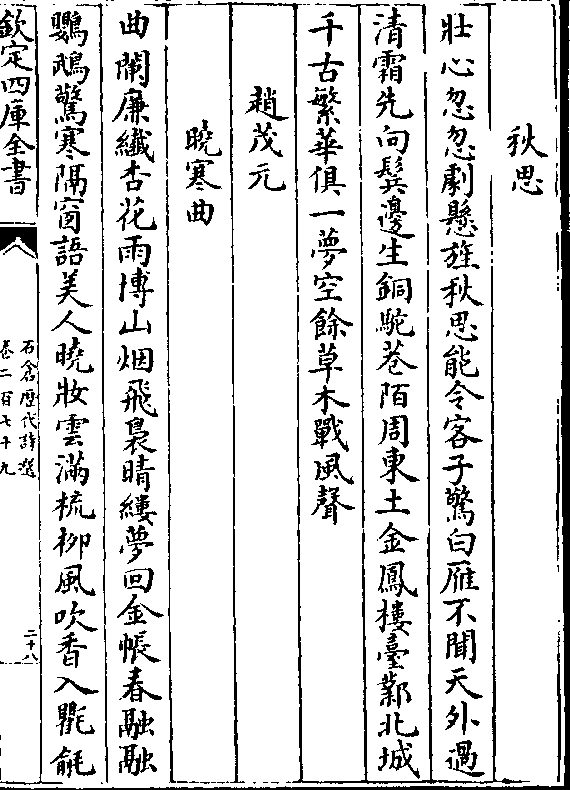 秋思
壯心忽忽劇懸旌秋思能令客子驚白雁不聞天外過
清霜先向鬂邊生銅駝巷陌周東土金鳳樓臺鄴北城
千古繁華俱一夢空餘草木戰風聲
趙茂元
曉寒曲
曲闌廉纖杏花雨博山烟飛裊晴縷夢回金帳春融融
鸚鵡驚寒隔窗語美人曉妝雲滿梳柳風吹香入氍毹
欽定四庫全書
石倉歷代詩選
卷二百七十九
二十八